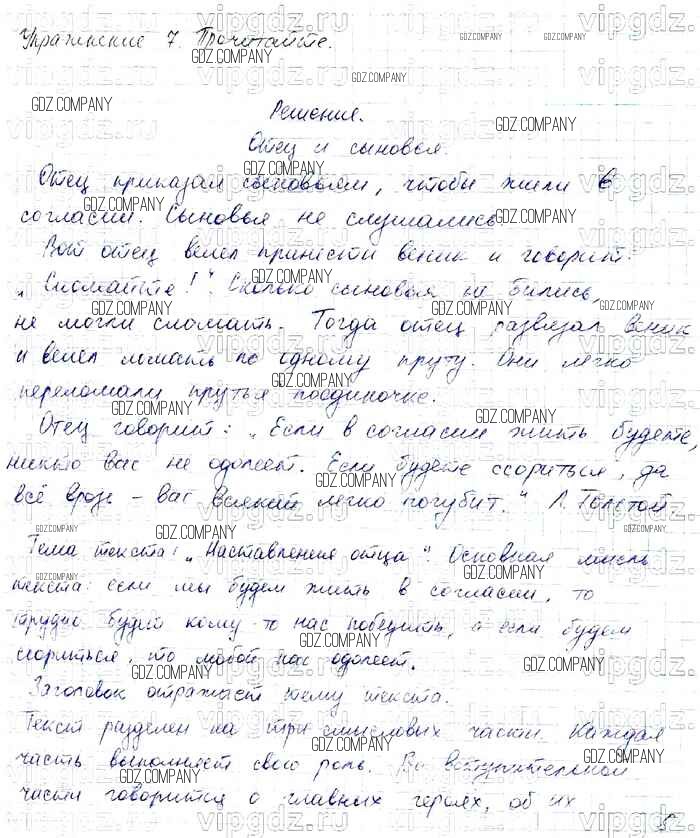 Упражнение 7. Прочитайте.
Решение.
Отец и сыновья.
Отец приказал сыновьям, чтобы жили в
согласии. Сыновья не слушались.
Вот отец велел принести веник и говорит:
"Сломайте!". Сколько сыновья не бились,
не могли сломать. Тогда отец развязал веник
и велел ломать по одному пруту. Они легко
переломали прутья поодиночке.
Отец говорит: "Если в согласии жить будете,
никто вас не одолеет. Если будете ссориться, да
всё врозь - вас всякий легко погубит." Л. Толстой.
Тема текста: "Наставления отца". Основная мысль
текста: если мы будем жить в согласии, то
трудно будет кому-то нас победить, а если будем
ссориться, то любой нас одолеет.
Заголовок отражает тему текста.
Текст разделен на три смысловых части. Каждая
часть выполняет свою роль. Во вступительной
части говорится о главных героях, об их
5
GDZ.COMPANY
vipgdz.ru